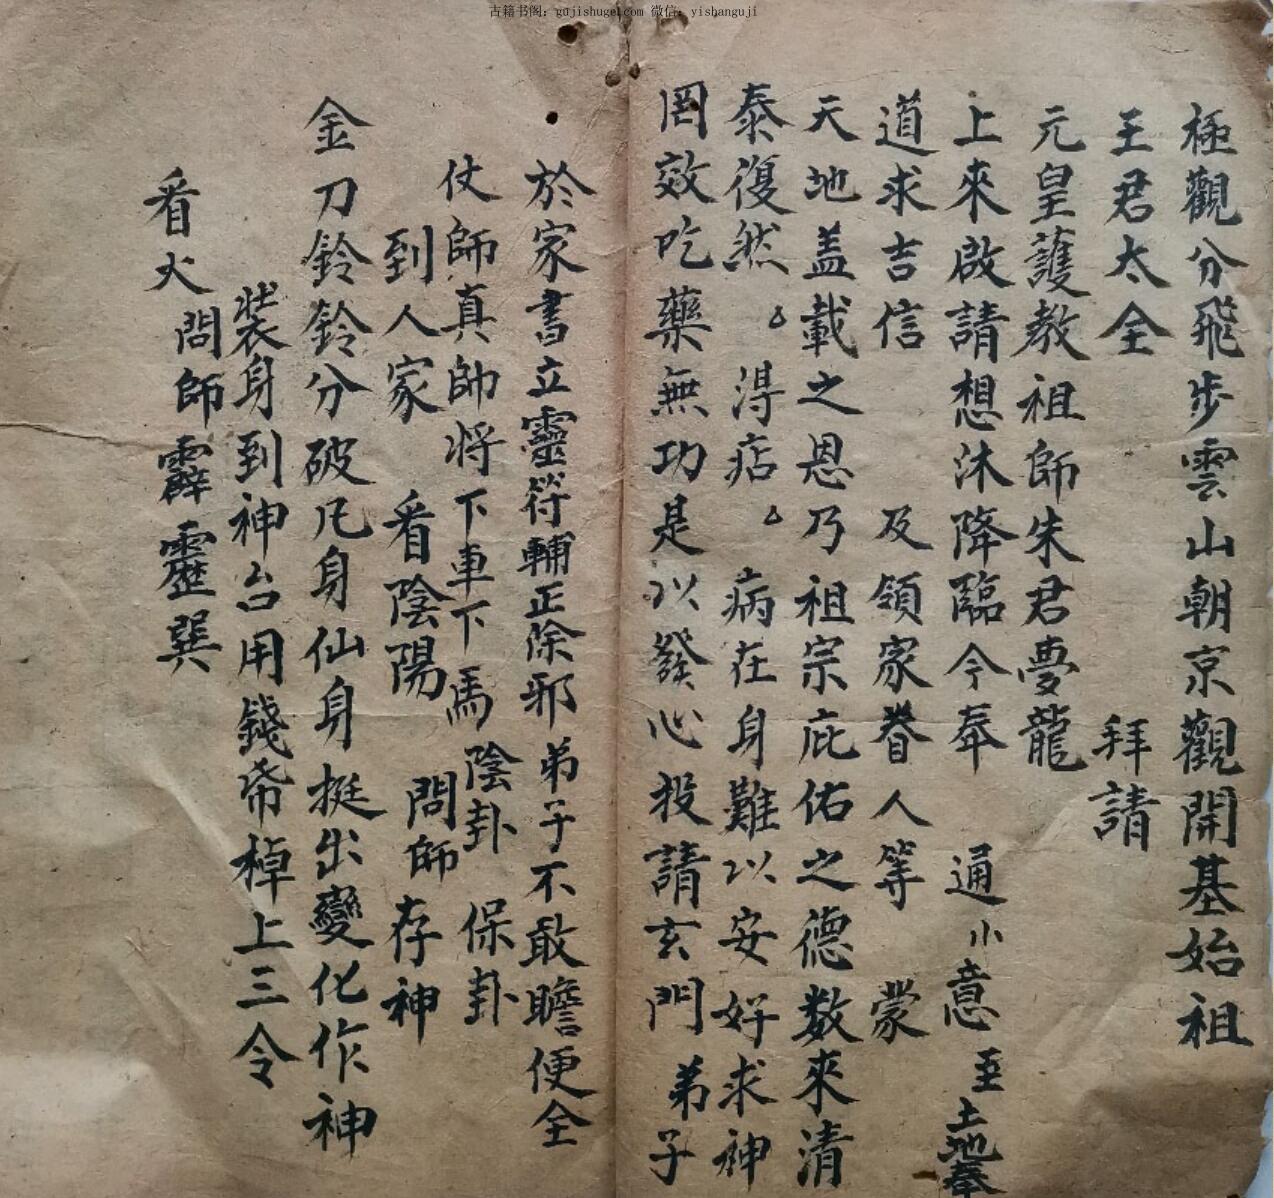 古籍书阁：gujishuge.com 微信：yishanguji
極觀分飛步雲山朝京觀開基始祖
王君太全 拜請
元皇護教祖師朱君夢龍
上來啟請想沐降臨今奉 通小意 至土地奉
道求吉信 及領家眷人等 蒙
天地盖載之恩乃祖宗庇佑之德数來清
泰復然 淂痁 病在身難以安好求神
罔效吃藥無功是以發心投請玄門弟子
於家書立靈符輔正除邪弟子不敢瞻便全
仗師真帥将下車下馬陰卦 保卦
到人家 看陰陽 問師 存神
金刀鈴鈴分破凡身仙身挺出變化作神
装身到神台用錢帋棹上三令
看火問師霹靂巽